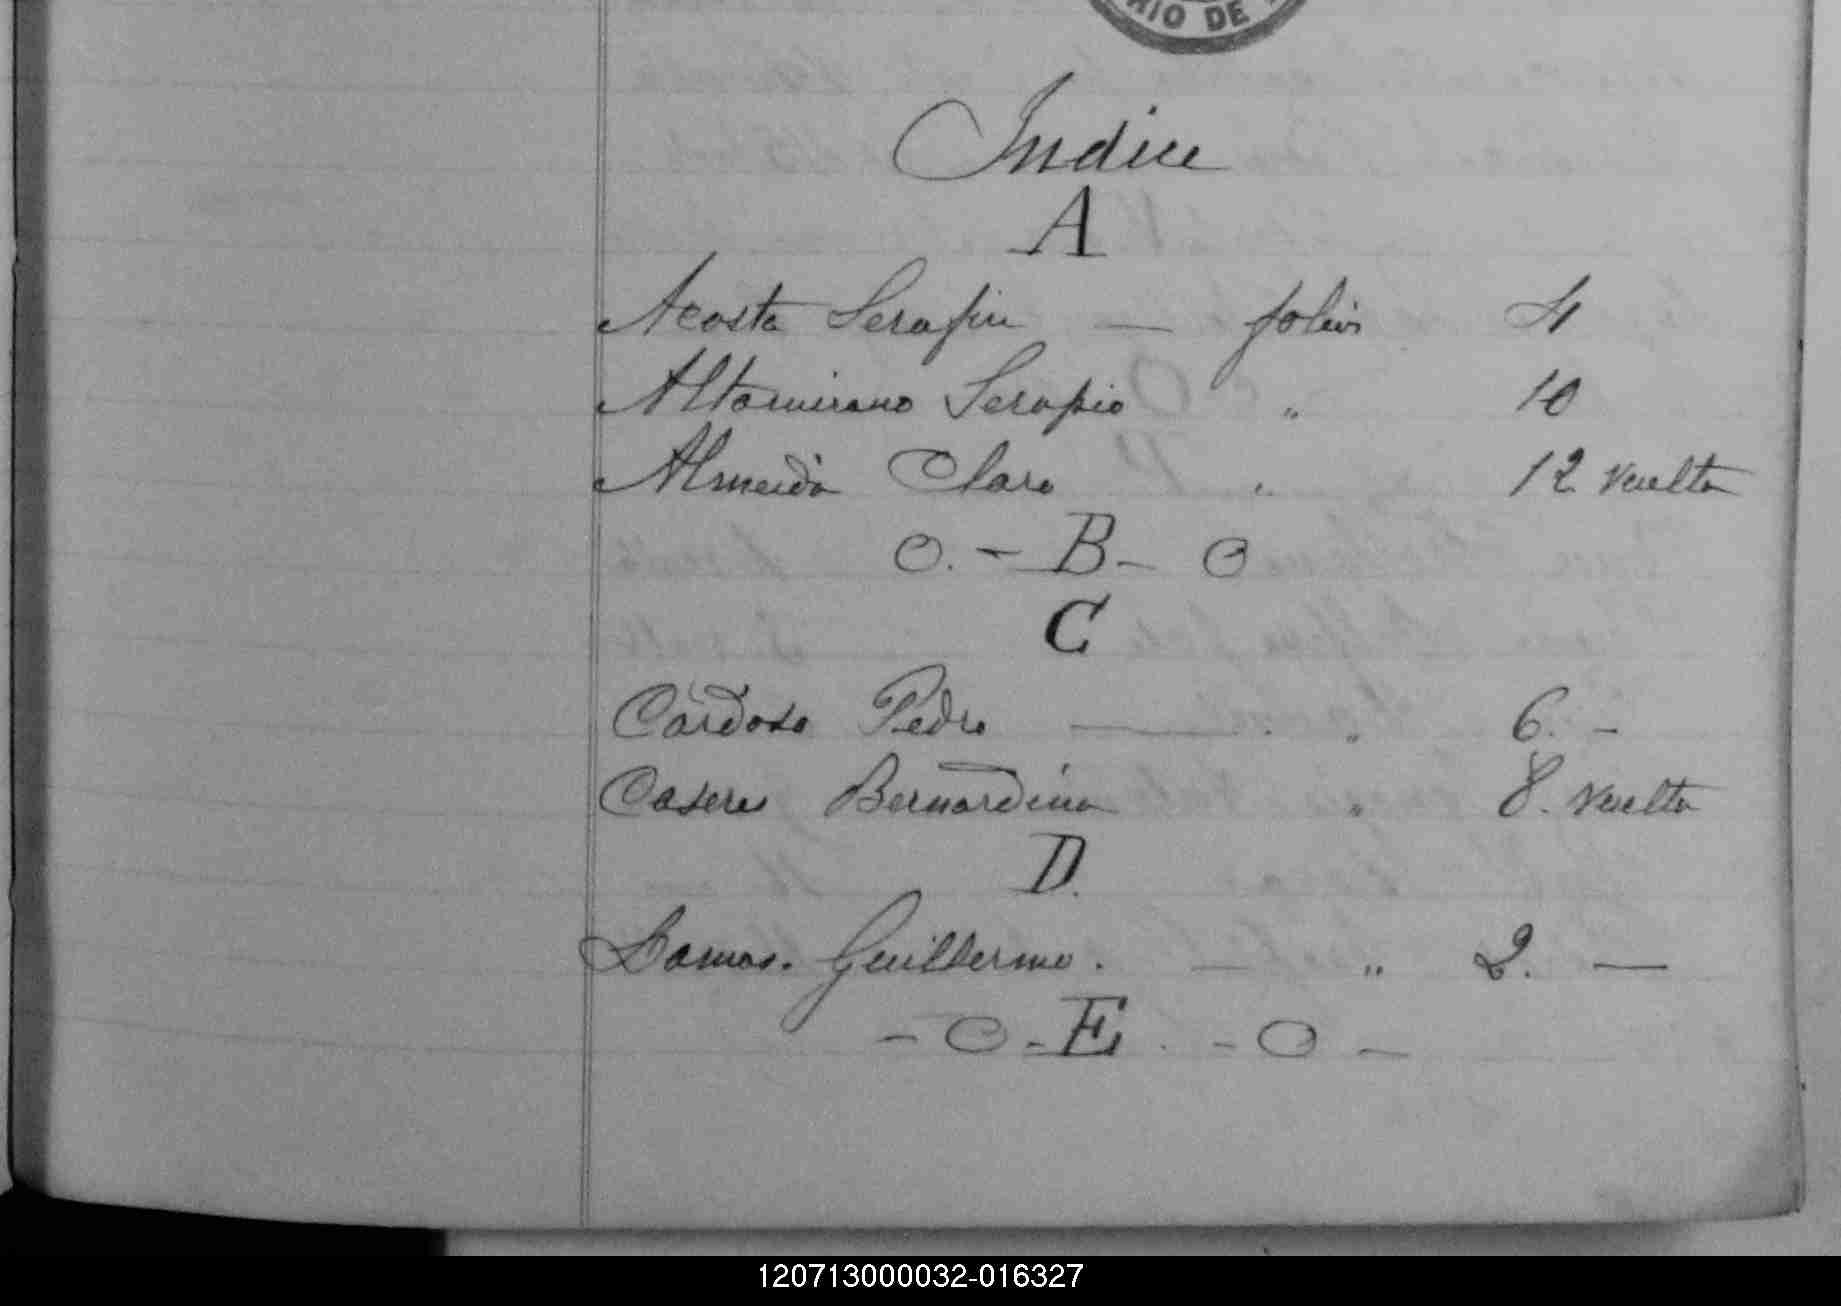 RIO DE
Indice
A
Acosta Serafin — folios 4
Altamirano Serapio " 10
Almeida Claro " 12 vuelta
O. - B - O
C
Cardoso Pedro — " 6. -
Caseres Bernardina " 8. vuelta
D.
Damas. Guillermo. — " 2. —
- O - E. - O -
120713000032-016327